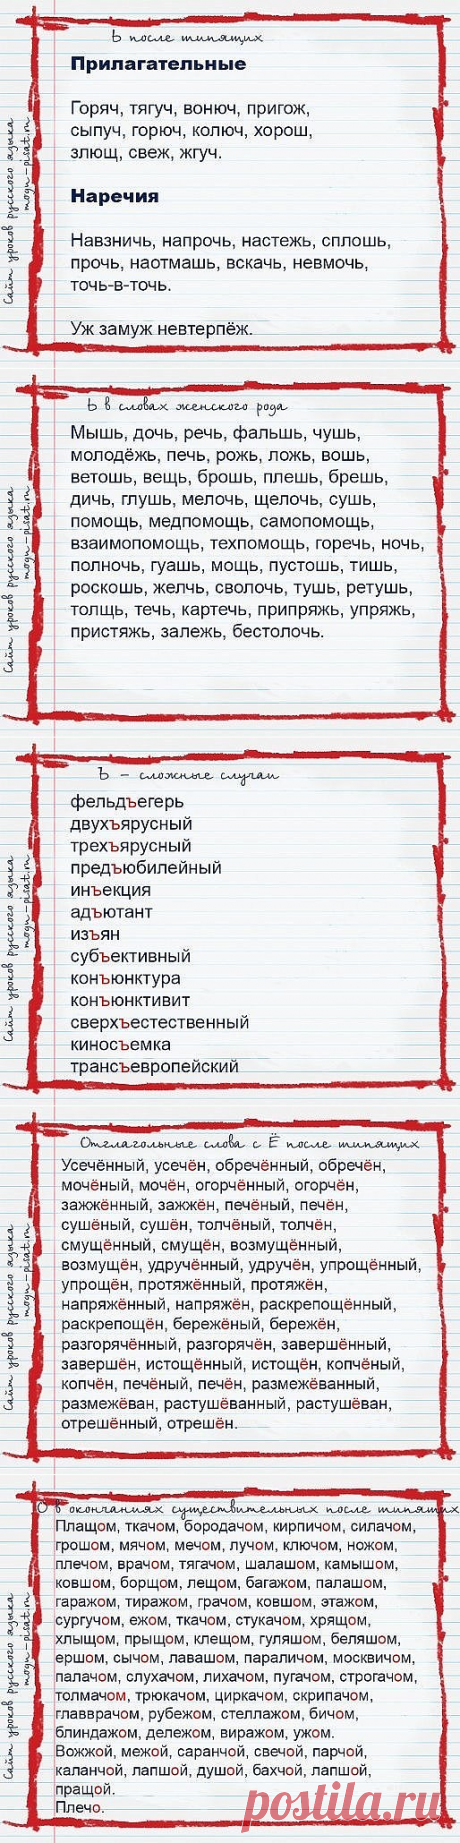 Ь после шипящих
Прилагательные
Горяч, тягуч, вонюч, пригож,
сыпуч, горюч, колюч, хорош,
злющ, свеж, жгуч.
Наречия
Навзничь, напрочь, настежь, сплошь,
прочь, наотмашь, вскачь, невмочь,
точь-в-точь.
Уж замуж невтерпёж.
Сайт уроков русского языка
mogu-pisat.ru
Ь в словах женского рода
Мышь, дочь, речь, фальшь, чушь,
молодёжь, печь, рожь, ложь, вошь,
ветошь, вещь, брошь, плешь, брешь,
дичь, глушь, мелочь, щелочь, сушь,
помощь, медпомощь, самопомощь,
взаимопомощь, техпомощь, горечь, ночь,
полночь, гуашь, мощь, пустошь, тишь,
роскошь, желчь, сволочь, тушь, ретушь,
толщь, течь, картечь, припряжь, упряжь,
пристяжь, залежь, бестолочь.
Сайт уроков русского языка
mogu-pisat.ru
Ъ – сложные случаи
фельдъегерь
двухъярусный
трехъярусный
предъюбилейный
инъекция
адъютант
изъян
субъективный
конъюнктура
конъюнктивит
сверхъестественный
киносъемка
трансъевропейский
Сайт уроков русского языка
mogu-pisat.ru
Отглагольные слова с Ё после шипящих
Усечённый, усечён, обречённый, обречён,
мочёный, мочён, огорчённый, огорчён,
зажжённый, зажжён, печёный, печён,
сушёный, сушён, толчёный, толчён,
смущённый, смущён, возмущённый,
возмущён, удручённый, удручён, упрощённый,
упрощён, протяжённый, протяжён,
напряжённый, напряжён, раскрепощённый,
раскрепощён, бережёный, бережён,
разгорячённый, разгорячён, завершённый,
завершён, истощённый, истощён, копчёный,
копчён, печёный, печён, размежёванный,
размежёван, растушёванный, растушёван,
отрешённый, отрешён.
Сайт уроков русского языка
mogu-pisat.ru
О в окончаниях существительных после шипящих
Плащом, ткачом, бородачом, кирпичом, силачом,
грошом, мячом, мечом, лучом, ключом, ножом,
плечом, врачом, тягачом, шалашом, камышом,
ковшом, борщом, лещом, багажом, палашом,
гаражом, тиражом, грачом, ковшом, этажом,
сургучом, ежом, ткачом, стукачом, хрящом,
хлыщом, прыщом, клещом, гуляшом, беляшом,
ершом, сычом, лавашом, параличом, москвичом,
палачом, слухачом, лихачом, пугачом, строгачом,
толмачом, трюкачом, циркачом, скрипачом,
главврачом, рубежом, стеллажом, бичом,
блиндажом, дележом, виражом, ужом.
Вожжой, межой, саранчой, свечой, парчой,
каланчой, лапшой, душой, бахчой, лапшой,
пращой.
Плечо.
Сайт уроков русского языка
mogu-pisat.ru
postila.ru